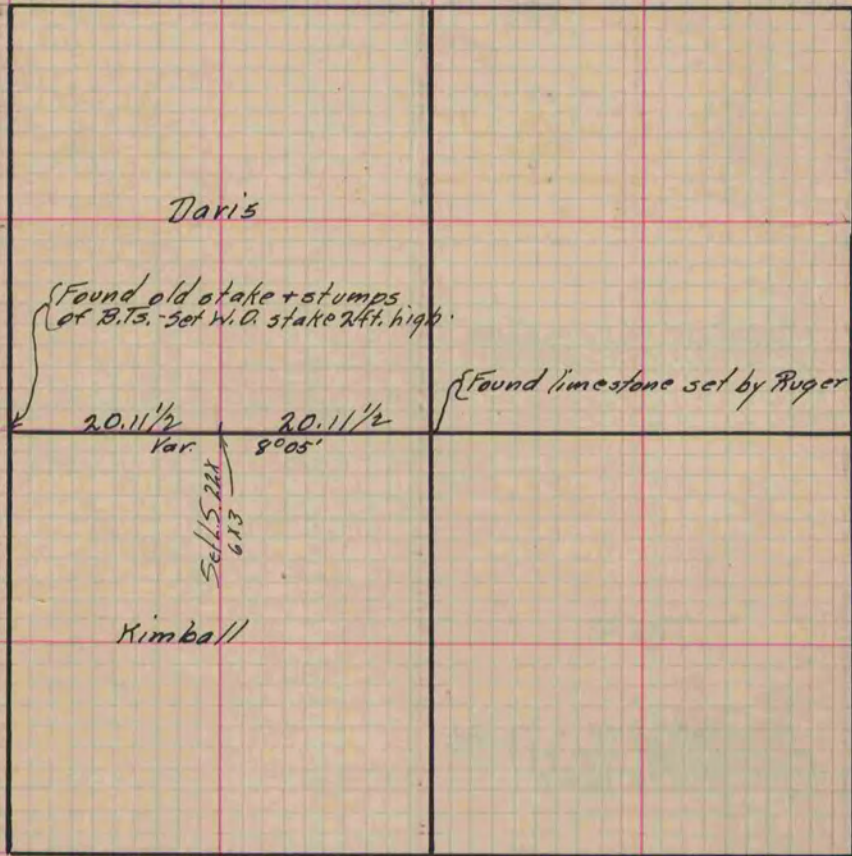 Davis
Found old stake + stumps
of B.Ts. - Set W.O. stake 2ft. high.
Found limestone set by Ruger
20.11 1/2 20.11 1/2
Var. 8°05'
Set L.S. 22x
6x3
Kimball